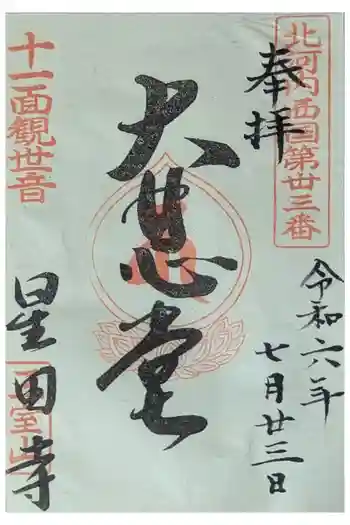 北河内西国第廿三番
奉拝
令和六年
七月廿三日
大悲堂
十一面観世音
星田寺